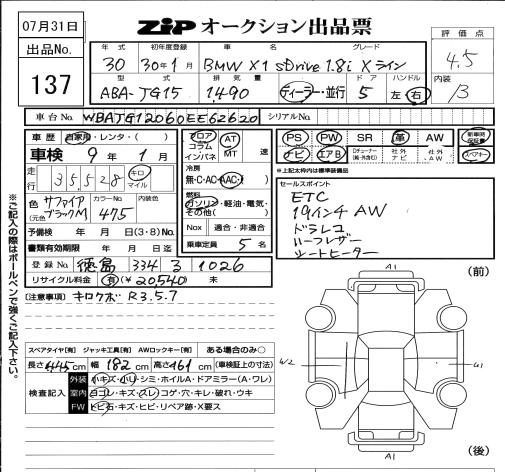 07月31日
ZiP オークション出品票
出品No.
137
評価点
4.5
内装
B
年式 初年度登録 車名 グレード
30 30年1月 BMW X1 sDrive 1.8i Xライン
型式 排気量 ドア ハンドル
ABA-JG15 1490 ディーラー・並行 5 左・右
車台No. WBAJG12060EE62620 シリアルNo.
車歴 自家用・レンタ・( )
車検 9年1月
走行 35,528 キロ マイル
色(元色) サファイアブラックM カラーNo. 475 内装色
予備検 年 月 日(3・8)No.
書類有効期限 年 月 日迄
登録No. 徳島 334 ろ 1026
リサイクル料金 有(¥20,540) 未
フロア コラム インパネ AT MT 速
冷房 無・C・AC・AAC
燃料 ガソリン・軽油・電気・その他( )
Nox 適合・非適合
乗車定員 5名
PS PW SR 革 AW 新車時保証書
ナビ エアB Dチューナー(純・外含む) 社外ナビ 社外AW 取パネキー
*上記太枠内は標準装備品
セールスポイント
ETC
19インチ AW
ドラレコ
ハーフレザー
シートヒーター
[注意事項] キロクボ R3.5.7
スペアタイヤ[有] ジャッキ工具[有] AWロックキー[有] ある場合のみ○
長さ445cm 幅182cm 高さ161cm (車検証上の寸法)
検査記入
外装 小キズ・小リ・シミ・ホイルA・ドアミラー(A・ワレ)
室内 ヨゴレ・キズ・スレ・コゲ・穴・キレ・破れ・ウキ
FW トビ石・キズ・ヒビ・リペア跡・X要ス
※ご記入の際はボールペンで強くご記入下さい。
A1
(前)
W2
A1
(後)